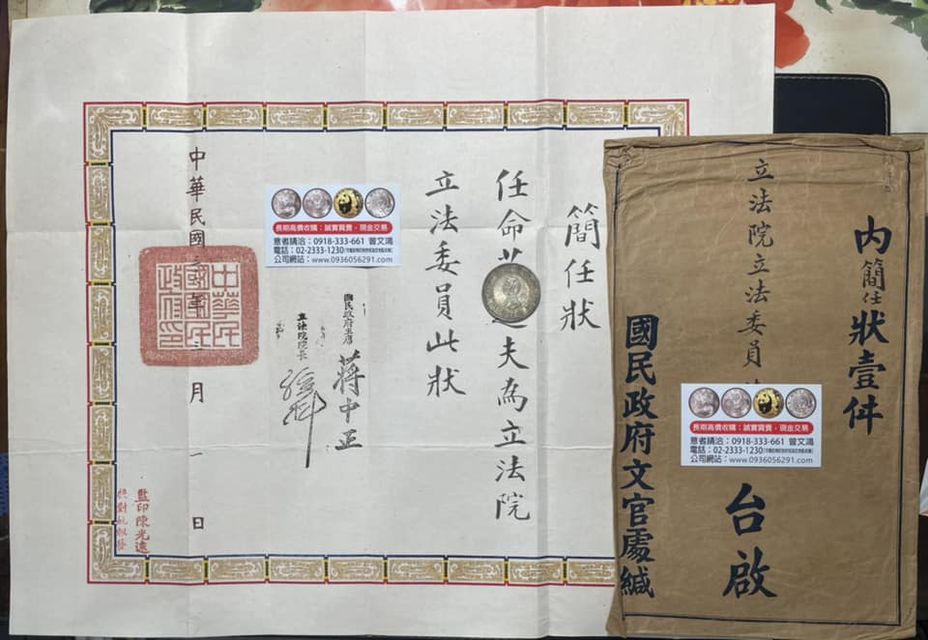 簡任狀
任命
夫為立法院
立法委員此狀
國民政府主席
蔣中正
立法院院長
孫科
中華民國
三
月
一
日
中華民國國民政府印
監印陳光遠
長期高價收購：誠實買賣，現金交易
意者請洽：0918-333-661 曾文鴻
電話：02-2333-1230
公司網站：www.0936056291.com
內簡任狀壹件
立法院立法委員
台啟
國民政府文官處緘
長期高價收購：誠實買賣，現金交易
意者請洽：0918-333-661 曾文鴻
電話：02-2333-1230
公司網站：www.0936056291.com